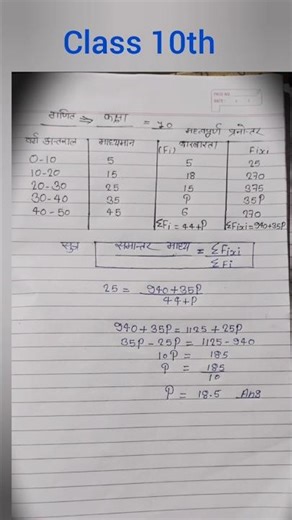 Class 10th
गणित ⇒ कक्षा = 10 महत्वपूर्ण प्रश्नोत्तर
वर्ग अन्तराल माध्यमान (Fi) बारंबारता Fixi
0-10 5 5 25
10-20 15 18 270
20-30 25 15 375
30-40 35 P 35P
40-50 45 6 270
ΣFi = 44+P ΣFixi=940+35P
सूत्र समान्तर माध्य = ΣFixi
ΣFi
25 = 940+35P
44+P
940+35P = 1125 +25P
35P - 25P = 1125-940
10P = 185
P = 185
10
P = 18.5 Ans